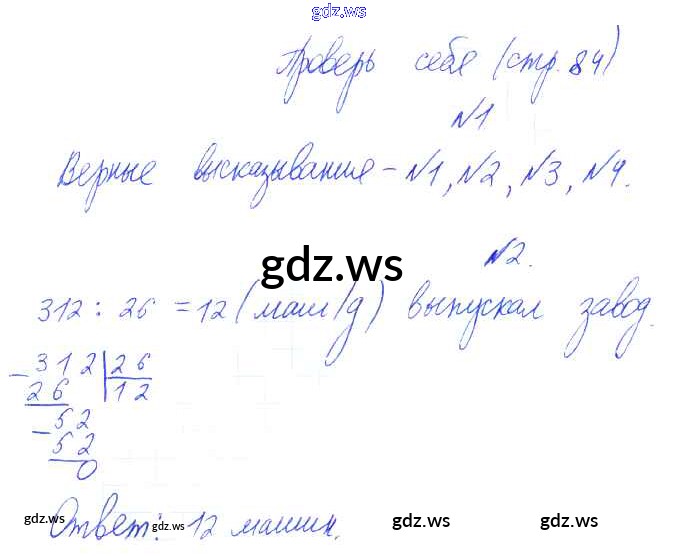 gdz.ws
Проверь себя (стр. 84)
№1
Верные высказывания - №1, №2, №3, №4.
gdz.ws
№2.
312 : 26 = 12 (маш/д) выпускал завод.
- 312 | 26
26 | 12
- 52
52
0
Ответ: 12 машин.
gdz.ws gdz.ws gdz.ws gdz.ws